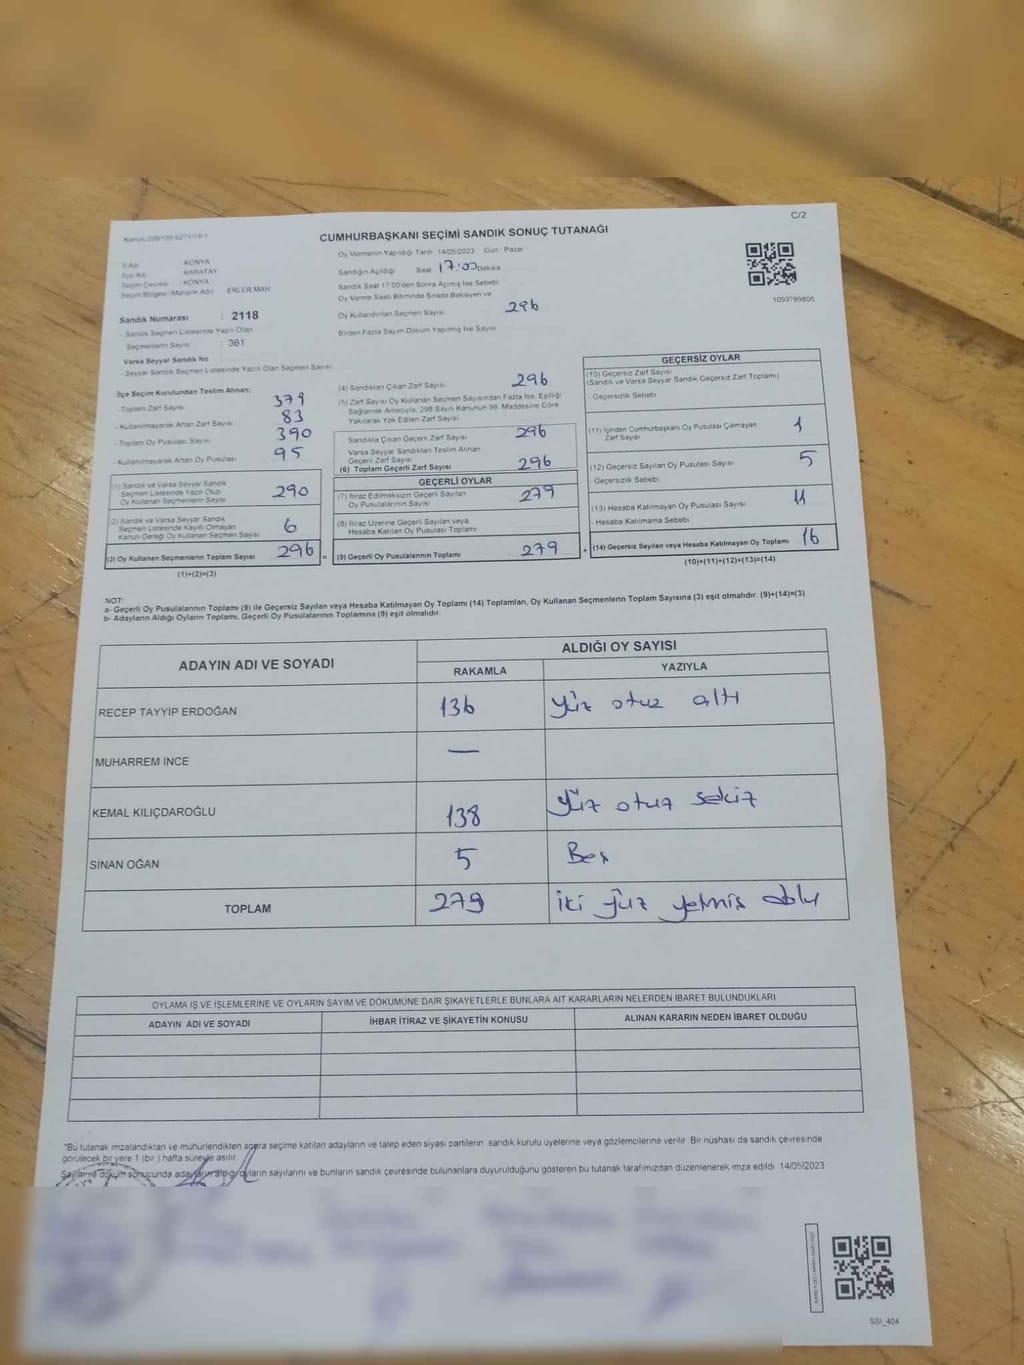 C/2
Kanun:298/105-6271/19-1
CUMHURBAŞKANI SEÇİMİ SANDIK SONUÇ TUTANAĞI
İl Adı : KONYA
İlçe Adı : KARATAY
Seçim Çevresi : KONYA
Seçim Bölgesi (Mahalle Adı) : ERLER MAH.
Oy Vermenin Yapıldığı Tarih 14/05/2023 Gün : Pazar
Sandığın Açıldığı Saat 17:00 Dakika
Sandık Saat 17:00'den Sonra Açılmış İse Sebebi
Oy Verme Saati Bitiminde Sırada Bekleyen ve
Oy Kullandırılan Seçmen Sayısı 296
Birden Fazla Sayım Döküm Yapılmış İse Sayısı
1093789806
Sandık Numarası : 2118
- Sandık Seçmen Listesinde Yazılı Olan
Seçmenlerin Sayısı : 361
Varsa Seyyar Sandık No
- Seyyar Sandık Seçmen Listesinde Yazılı Olan Seçmen Sayısı
İlçe Seçim Kurulundan Teslim Alınan:
- Toplam Zarf Sayısı 379
- Kullanılmayarak Artan Zarf Sayısı 83
- Toplam Oy Pusulası Sayısı 390
- Kullanılmayarak Artan Oy Pusulası 95
(1) Sandık ve Varsa Seyyar Sandık
Seçmen Listesinde Yazılı Olup
Oy Kullanan Seçmenlerin Sayısı 290
(2) Sandık ve Varsa Seyyar Sandık
Seçmen Listesinde Kayıtlı Olmayan
Kanun Gereği Oy Kullanan Seçmen Sayısı 6
(3) Oy Kullanan Seçmenlerin Toplam Sayısı 296 =
(1)+(2)=(3)
(4) Sandıktan Çıkan Zarf Sayısı 296
(5) Zarf Sayısı Oy Kullanan Seçmen Sayısından Fazla İse, Eşitliği
Sağlamak Amacıyla, 298 Sayılı Kanunun 98. Maddesine Göre
Yakılarak Yok Edilen Zarf Sayısı
Sandıkta Çıkan Geçerli Zarf Sayısı 296
Varsa Seyyar Sandıktan Teslim Alınan
Geçerli Zarf Sayısı
(6) Toplam Geçerli Zarf Sayısı 296
GEÇERLİ OYLAR
(7) İtiraz Edilmeksizin Geçerli Sayılan
Oy Pusulalarının Sayısı 279
(8) İtiraz Üzerine Geçerli Sayılan veya
Hesaba Katılan Oy Pusulası Toplamı
(9) Geçerli Oy Pusulalarının Toplamı 279 +
GEÇERSİZ OYLAR
(10) Geçersiz Zarf Sayısı
(Sandık ve Varsa Seyyar Sandık Geçersiz Zarf Toplamı)
- Geçersizlik Sebebi
(11) İçinden Cumhurbaşkanı Oy Pusulası Çıkmayan
Zarf Sayısı 1
(12) Geçersiz Sayılan Oy Pusulası Sayısı 5
- Geçersizlik Sebebi
(13) Hesaba Katılmayan Oy Pusulası Sayısı 11
- Hesaba Katılmama Sebebi
(14) Geçersiz Sayılan veya Hesaba Katılmayan Oy Toplamı 16
(10)+(11)+(12)+(13)=(14)
NOT:
a- Geçerli Oy Pusulalarının Toplamı (9) ile Geçersiz Sayılan veya Hesaba Katılmayan Oy Toplamı (14) Toplamları, Oy Kullanan Seçmenlerin Toplam Sayısına (3) eşit olmalıdır. (9)+(14)=(3)
b- Adayların Aldığı Oyların Toplamı, Geçerli Oy Pusulalarının Toplamına (9) eşit olmalıdır.
ADAYIN ADI VE SOYADI
ALDIĞI OY SAYISI
RAKAMLA YAZIYLA
RECEP TAYYİP ERDOĞAN 136 Yüz otuz altı
MUHARREM İNCE —
KEMAL KILIÇDAROĞLU 138 Yüz otuz sekiz
SİNAN OĞAN 5 Beş
TOPLAM 279 iki yüz yetmiş
OYLAMA İŞ VE İŞLEMLERİNE VE OYLARIN SAYIM VE DÖKÜMÜNE DAİR ŞİKAYETLERLE BUNLARA AİT KARARLARIN NELERDEN İBARET BULUNDUKLARI
ADAYIN ADI VE SOYADI İHBAR İTİRAZ VE ŞİKAYETİN KONUSU ALINAN KARARIN NEDEN İBARET OLDUĞU
"Bu tutanak imzalandıktan ve mühürlendikten sonra seçime katılan adayların ve talep eden siyasi partilerin sandık kurulu üyelerine veya gözlemcilerine verilir. Bir nüshası da sandık çevresinde
görülecek bir yere 1 (bir ) hafta süreyle asılır.
Sayım ve döküm sonucunda adayların aldığı oyların sayılarını ve bunların sandık çevresinde bulunanlara duyurulduğunu gösteren bu tutanak tarafımızdan düzenlenerek imza edildi. 14/05/2023
SSI_404